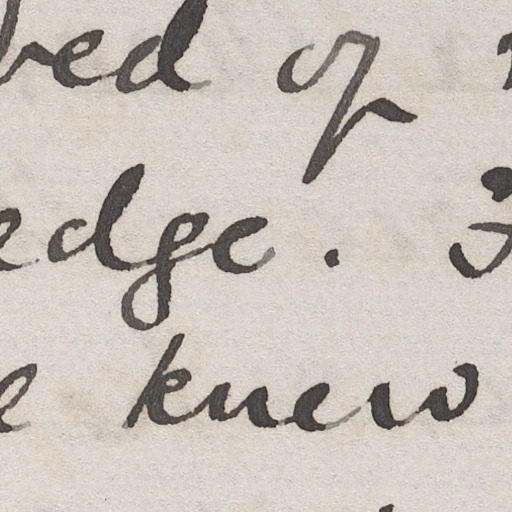 ved of
edge.
e knew